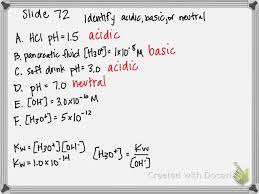 Slide 72
Identify acidic, basic, or neutral
A. HCl pH = 1.5 acidic
B. pancreatic fluid [H₃O⁺] = 1x10⁻⁸ M basic
C. soft drink pH = 3.0 acidic
D. pH = 7.0 neutral
E. [OH⁻] = 3.0x10⁻¹⁰ M
F. [H₃O⁺] = 5x10⁻¹²
Kw = [H₃O⁺][OH⁻]
Kw = 1.0x10⁻¹⁴
[H₃O⁺] = Kw / [OH⁻]
Created with Doceri